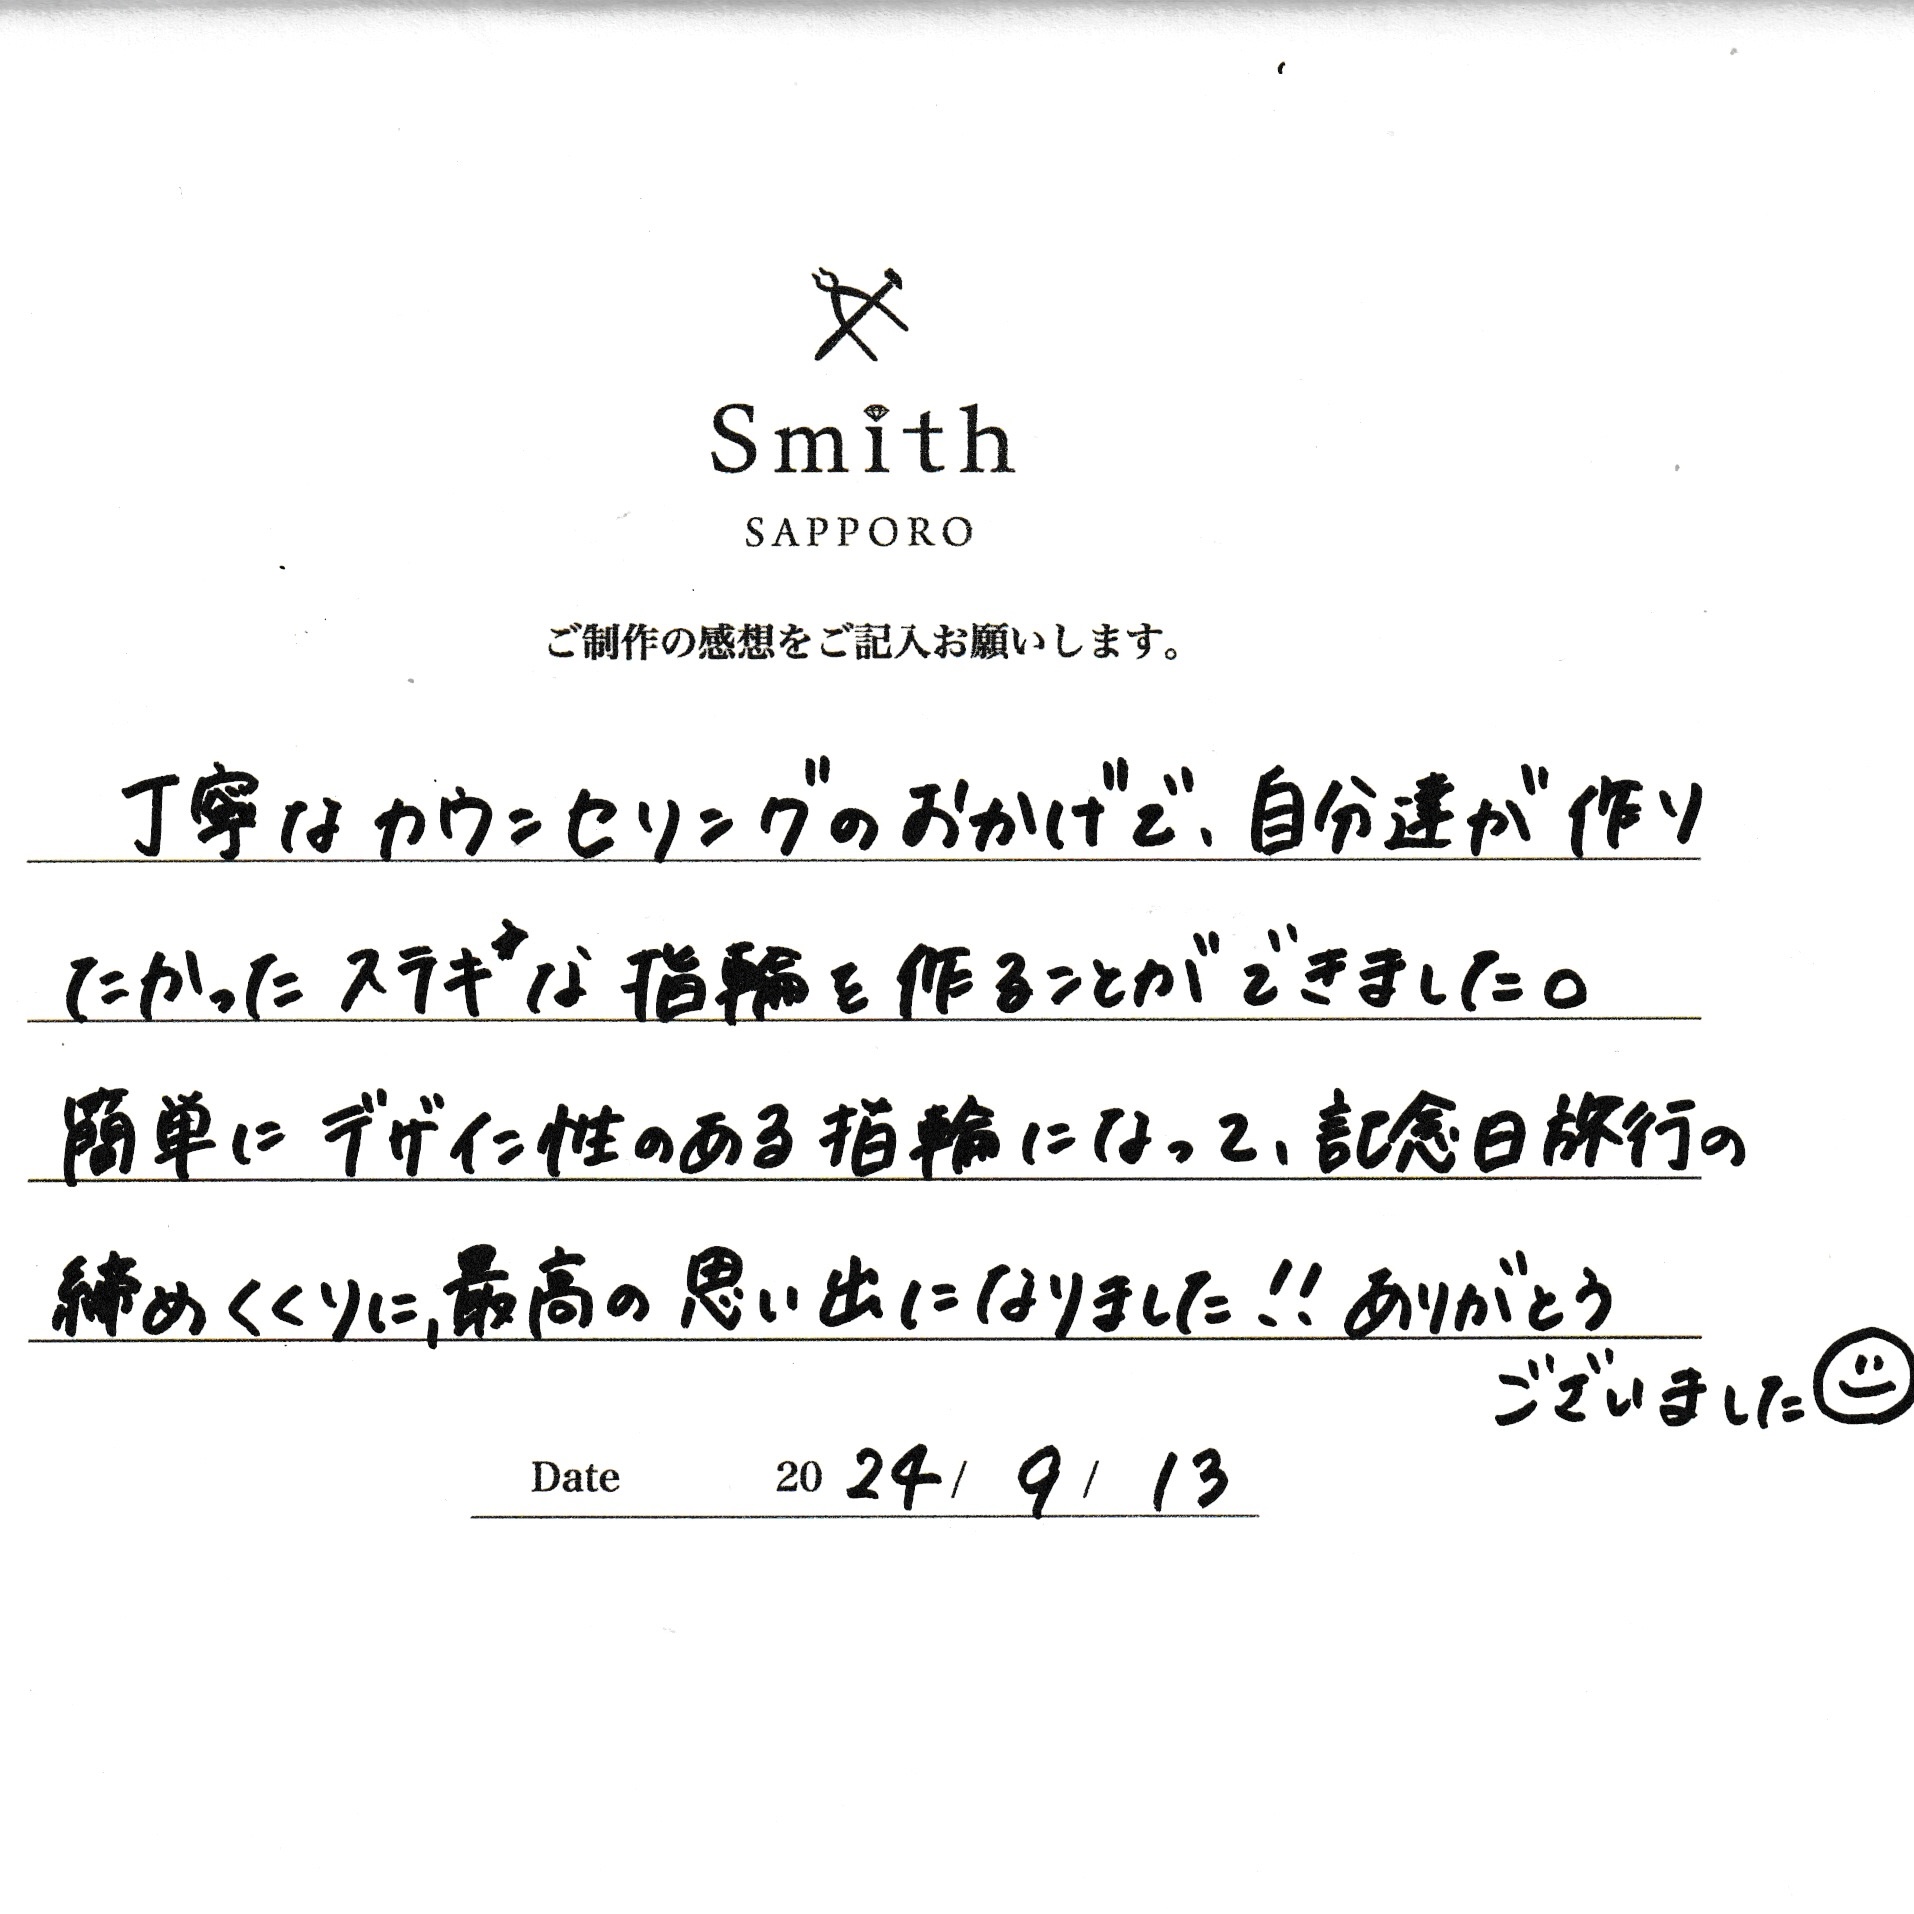 Smith
SAPPORO
ご制作の感想をご記入お願いします。
丁寧なカウンセリングのおかげで、自分達が作り
たかったステキな指輪を作ることができました。
簡単にデザイン性のある指輪になって、記念日旅行の
締めくくりに,最高の思い出になりました!! ありがとう
ございました
Date 2024/ 9/ 13